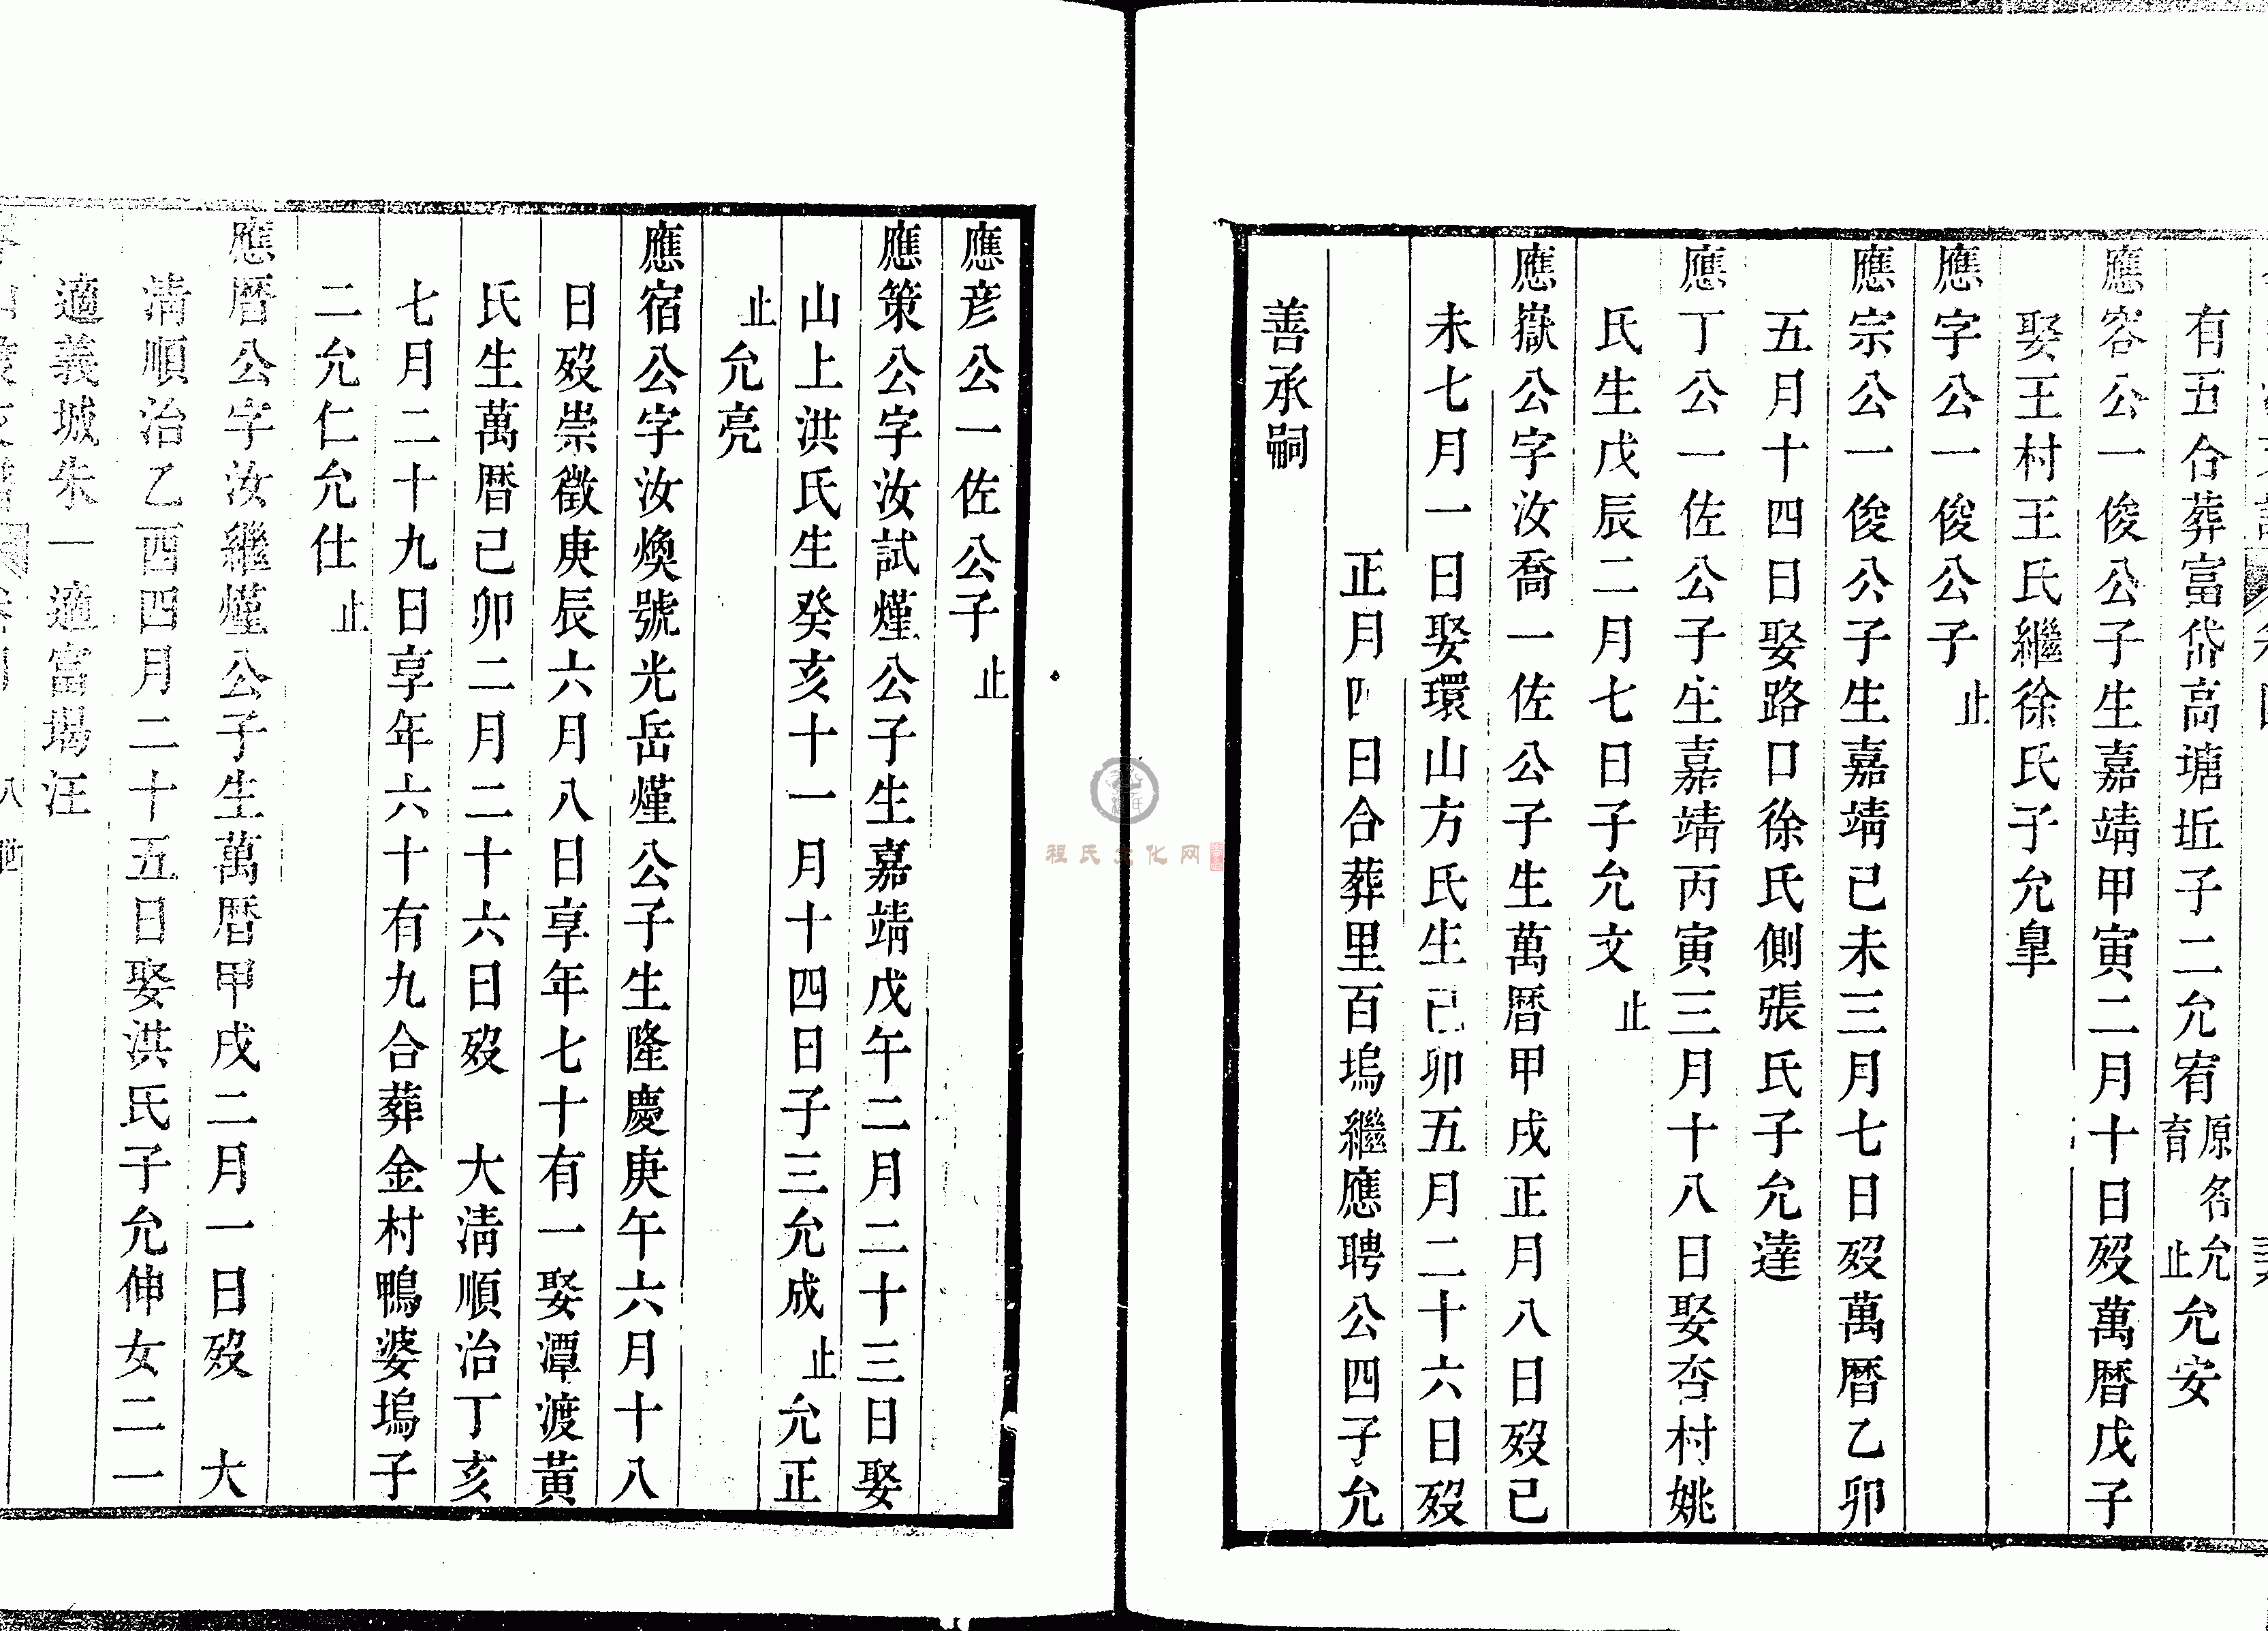 有五合葬富岱高塘坵子二允宥原名允育止允安
應容公一俊公子生嘉靖甲寅二月十日歿萬曆戊子
娶王村王氏繼徐氏子允臯
應字公一俊公子止
應宗公一俊公子生嘉靖己未三月七日歿萬曆乙卯
五月十四日娶路口徐氏側張氏子允達
應丁公一佐公子生嘉靖丙寅三月十八日娶杏村姚
氏生戊辰二月七日子允文止
應嶽公字汝喬一佐公子生萬曆甲戌正月八日歿己
未七月一日娶環山方氏生己卯五月二十六日歿
正月四日合葬里百塢繼應聘公四子允
善承嗣
應彦公一佐公子止
應策公字汝試熞公子生嘉靖戊午二月二十三日娶
山上洪氏生癸亥十一月十四日子三允成止允正
止允亮
應宿公字汝煥號光岳熞公子生隆慶庚午六月十八
日歿崇徵庚辰六月八日享年七十有一娶潭渡黃
氏生萬曆己卯二月二十六日歿 大淸順治丁亥
七月二十九日享年六十有九合葬金村鴨婆塢子
二允仁允仕止
應曆公字汝繼熞公子生萬曆甲戌二月一日歿 大
淸順治乙酉四月二十五日娶洪氏子允伸女二一
適義城朱一適富堨汪
八世
程氏文化网